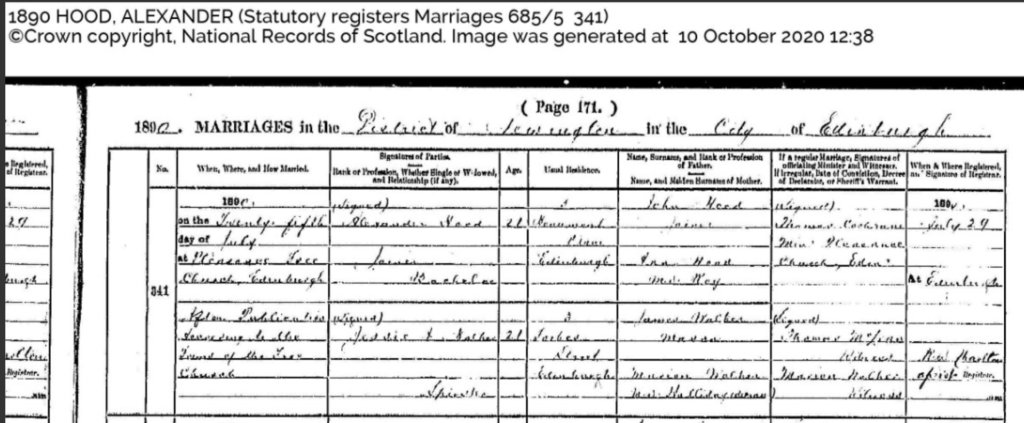 1890 HOOD, ALEXANDER (Statutory registers Marriages 685/5 341)
©Crown copyright, National Records of Scotland. Image was generated at 10 October 2020 12:38
( Page 171. )
1890. MARRIAGES in the District of Newington in the City of Edinburgh
No.
When, Where, and How Married.
Signatures of Parties.
Rank or Profession, Whether Single or Widowed, and Relationship (if any).
Age.
Usual Residence.
Name, Surname, and Rank or Profession of Father.
Name, and Maiden Surname of Mother.
If a regular Marriage, Signatures of officiating Minister and Witnesses.
If irregular, Date of Conviction, Decree of Declarator, or Sheriff's Warrant.
When & Where Registered, and Signature of Registrar.
341
1890.
on the Twenty fifth
day of July
at Pleasance Free
Church, Edinburgh
After Publication
according to the
Forms of the Free
Church
(Signed)
Alexander Hood
Joiner
Bachelor
(Signed)
Jessie Walker
Spinster
21
21
Place
Edinburgh
Forbes
Street
Edinburgh
John Hood
Joiner
Ann Hood
M.S. Roy
James Walker
Mason
Marion Walker
(Signed)
Thomas Cochrane
Min. Pleasance
Church, Edinr
(Signed)
Thomas
Witness
Marion Walker
Witness
1890.
July 29
At Edinburgh
Charlton
Registrar.
Registered,
of Registrar.
29
Registrar.